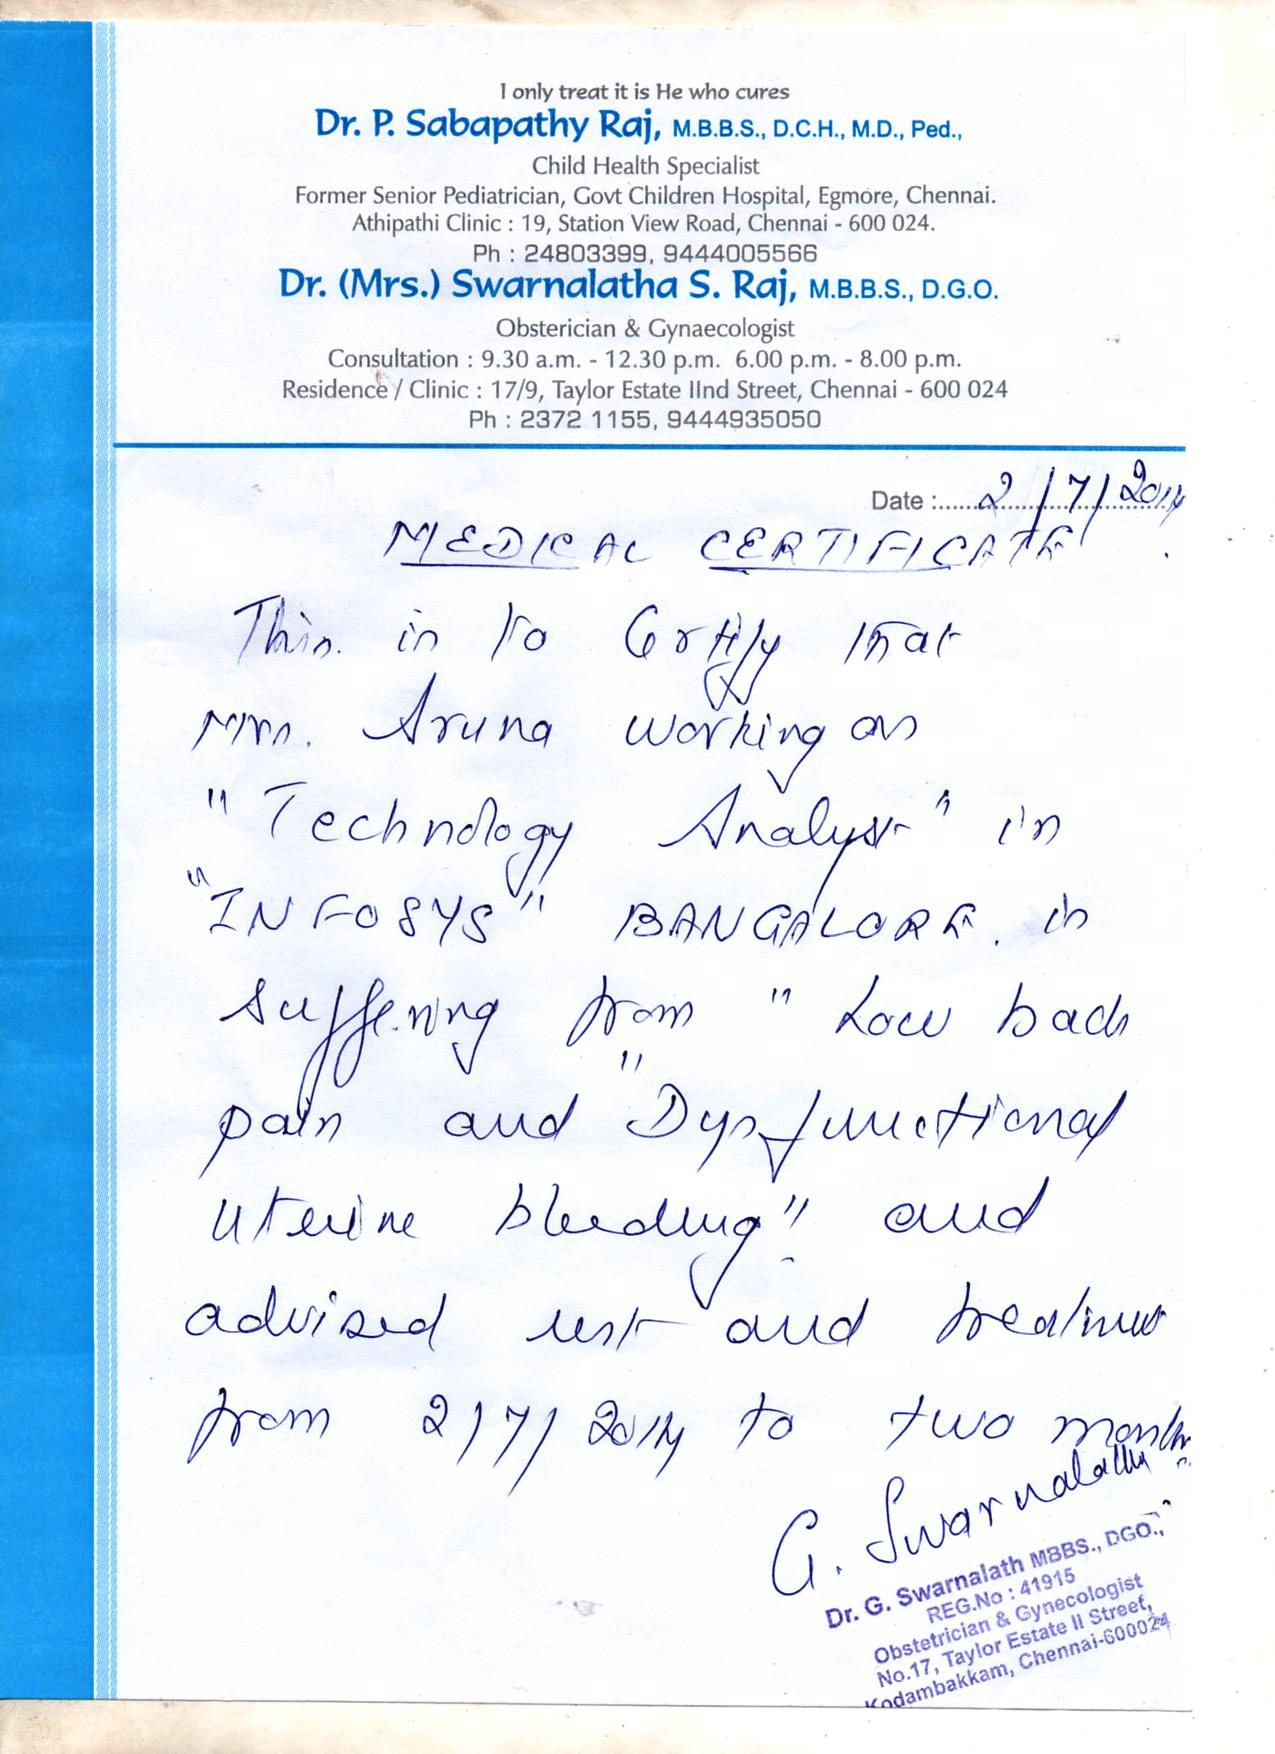 I only treat it is He who cures
Dr. P. Sabapathy Raj, M.B.B.S., D.C.H., M.D., Ped.,
Child Health Specialist
Former Senior Pediatrician, Govt Children Hospital, Egmore, Chennai.
Athipathi Clinic : 19, Station View Road, Chennai - 600 024.
Ph : 24803399, 9444005566
Dr. (Mrs.) Swarnalatha S. Raj, M.B.B.S., D.G.O.
Obsterician & Gynaecologist
Consultation : 9.30 a.m. - 12.30 p.m. 6.00 p.m. - 8.00 p.m.
Residence / Clinic : 17/9, Taylor Estate IInd Street, Chennai - 600 024
Ph : 2372 1155, 9444935050
Date : 2/7/2014
MEDICAL CERTIFICATE
This is to Certify that
Mrs. Aruna working as
" Technology Analyst " in
"INFOSYS" BANGALORE. is
suffering from " Low back
pain and "Dysfunctional
uterine bleeding" and
advised rest and treatment
from 2/7/2014 to two months
G. Swarnalatha
Dr. G. Swarnalath MBBS., DGO.,
REG.No : 41915
Obstetrician & Gynecologist
No.17, Taylor Estate II Street,
Kodambakkam, Chennai-600024